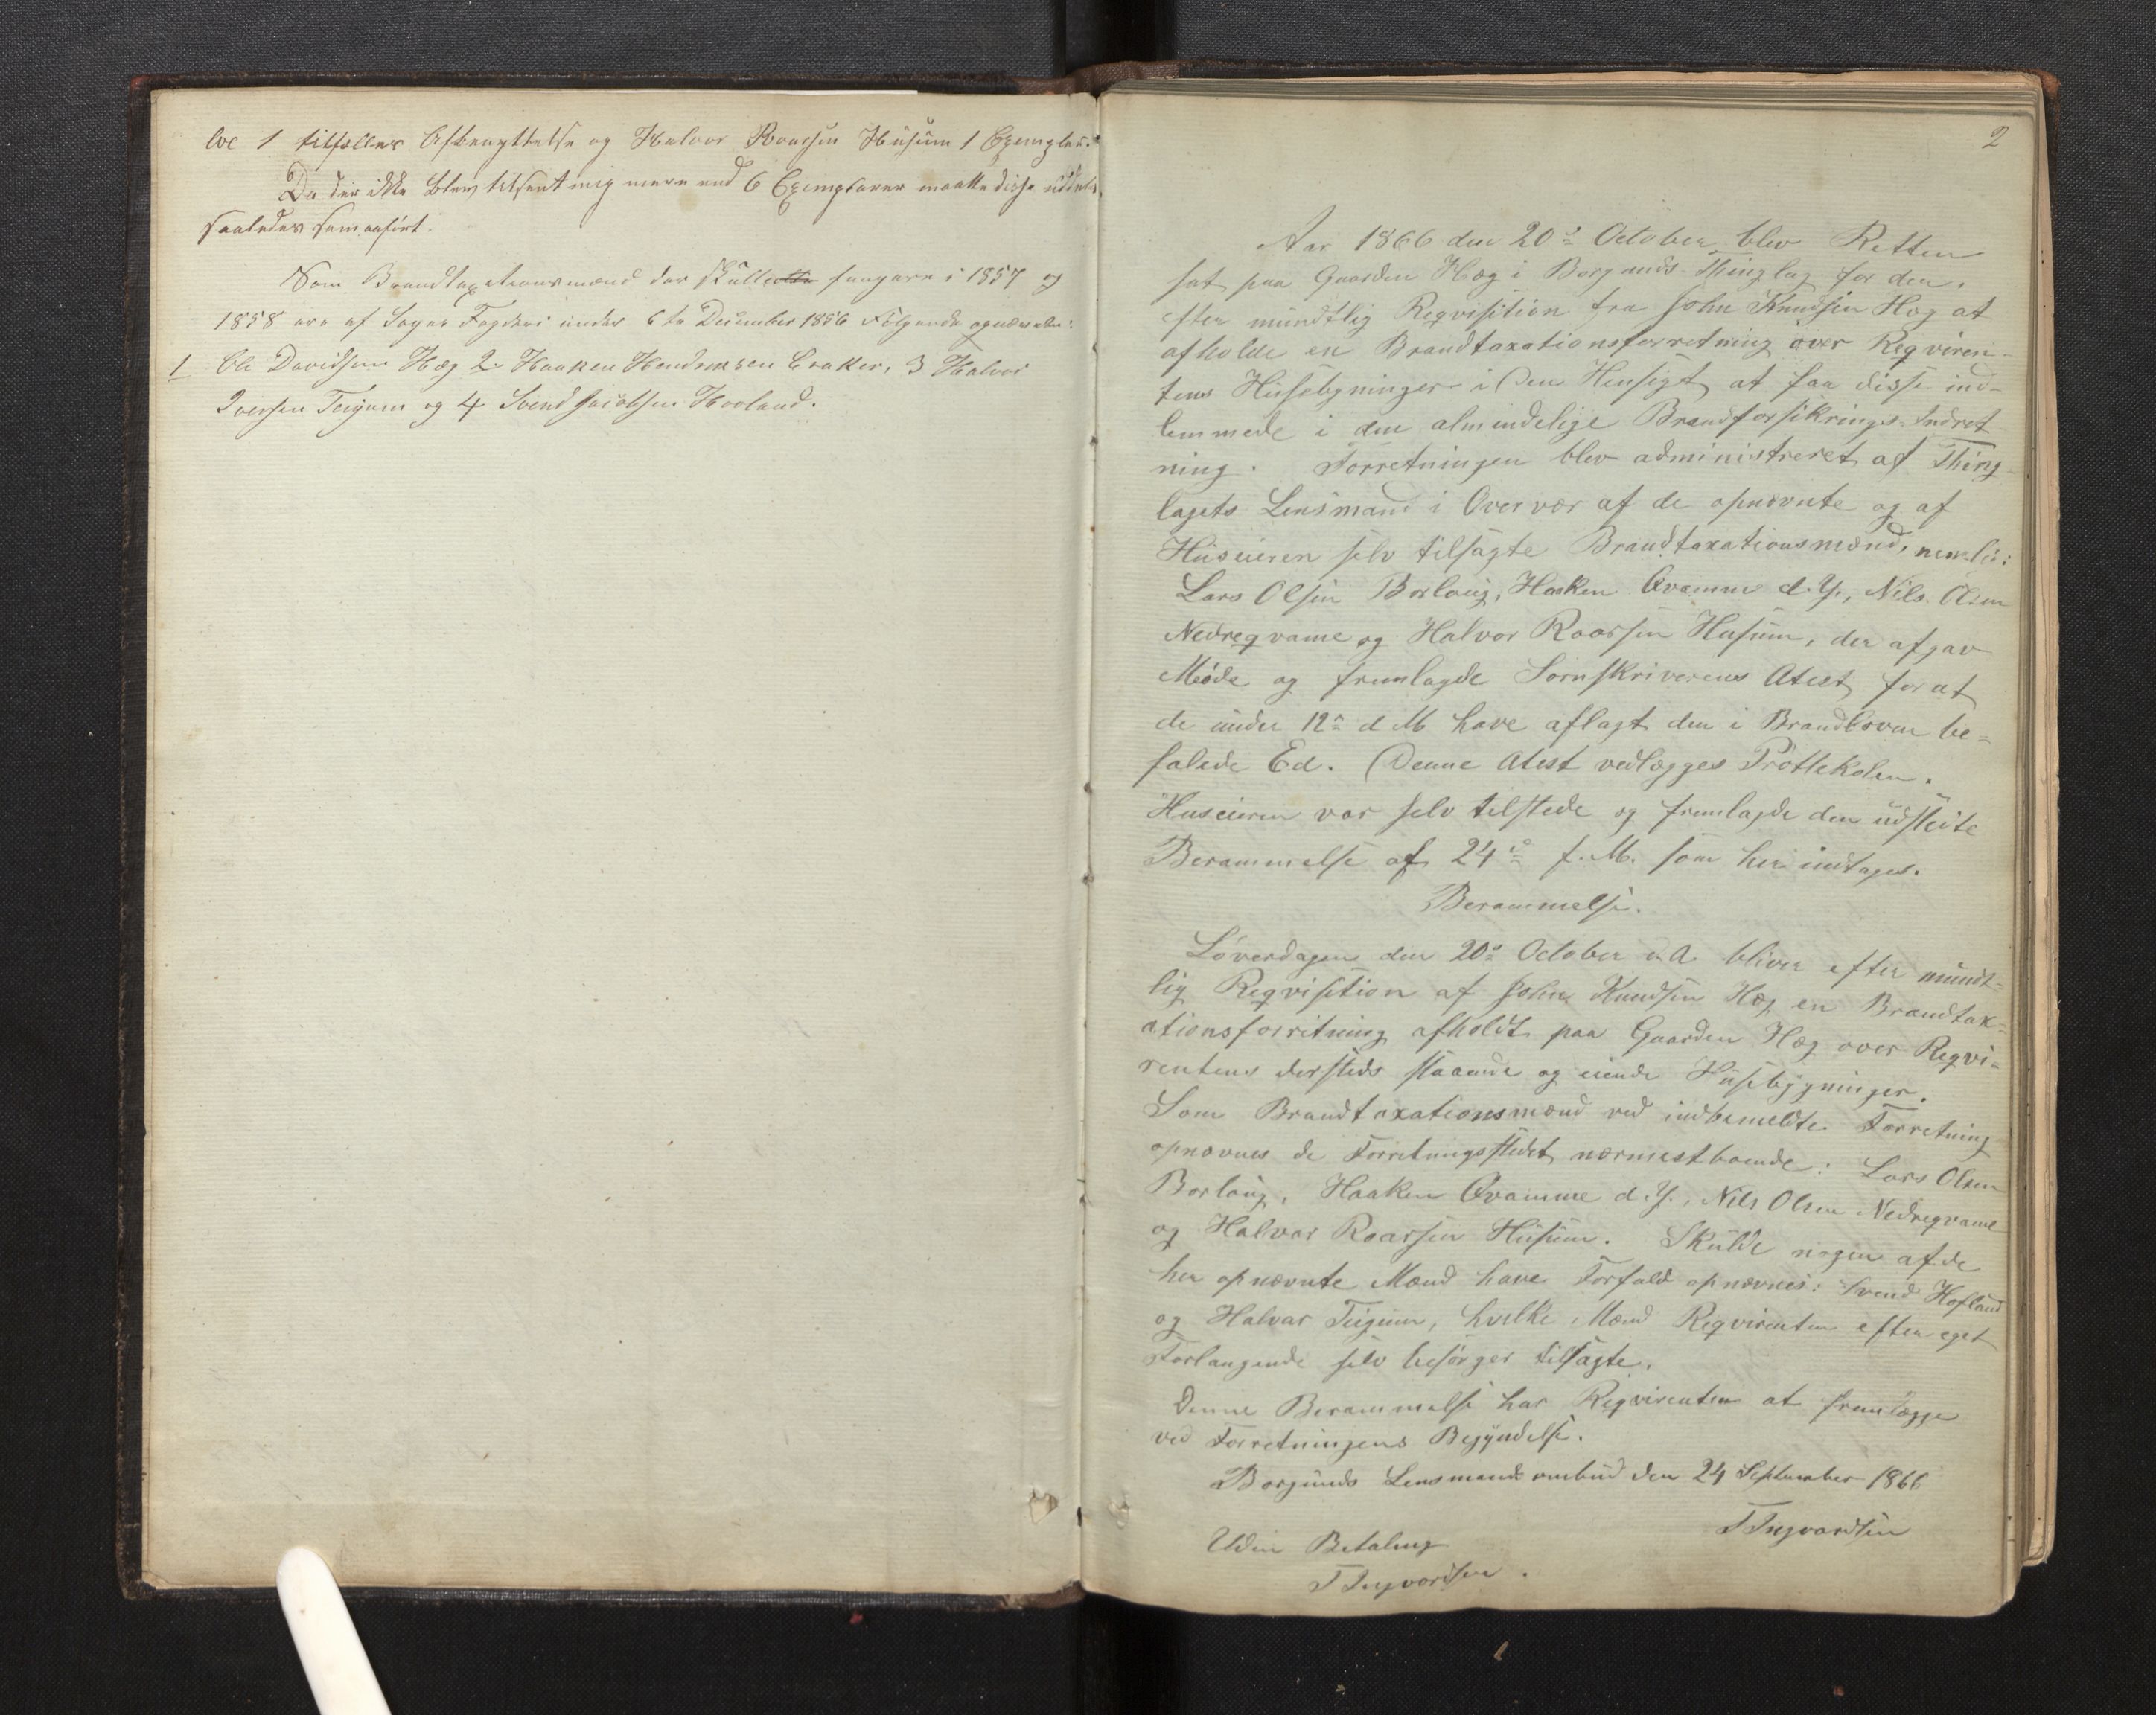 loc 1 tilfælles Afbenyttelse og Halvor Roarsen Husum 1 Exemplar.
Da der ikke blev tilsent mig mere end 6 Exemplarer maatte disse uddeles
saaledes som anført.
Som Brandtaxationsmænd der skulle fungere i 1857 og
1858 ere af Sogne Fogderi under 6te December 1856 Følgende opnævnte:
1 Ole Davidsen Hæg 2 Haaken Hendreksen Craker, 3 Halvor
Iversen Teigum og 4 Svend Jacobsen Hovland.
2
Aar 1866 den 20de October blev Retten
sat paa Gaarden Hæg i Borgunds Thinglag for den,
efter mündtlig Reqvisition fra John Knudsen Hæg at
afholde en Brandtaxationsforretning over Reqviren-
tens Husebygninger i den Hensigt at faa disse ind-
lemmede i den almindelige Brandforsikrings-Indret
ning. Forretningen blev administreret af Thing
lagets Lensmand i Overvær af de opnævnte og af
Huseieren selv tilsagte Brandtaxationsmænd, nemlig:
Lars Olsen Borlaug, Haaken Qvamme d.Y., Nils Olsen
Nedreqvame og Halvor Roarsen Husum, der afgav
Møde og fremlagde Sornskriverens Atest for at
de under 12te d M have aflagt den i Brandloven be=
falede Ed. Denne Atest vedlægges Prottekolen.
Huseieren var selv tilstede og fremlagde den udstedte
Berammelse af 24de f. M. som her indtages.
Berammelse.
Løverdagen den 20de October d.A. bliver efter mündt=
lig Reqvisition af John Knudsen Hæg en Brandtax=
ationsforretning afholdt paa Gaarden Hæg over Reqvi=
rentens dersteds staaende og eiende Husebygninger.
Som Brandtaxationsmænd ved indbemeldte Forretning
opnævnes de Forretningsstedet nærmestboende: Lars Olsen
Borlaug, Haaken Qvamme d.Y., Nils Olsen Nedreqvame
og Halvor Roarsen Husum. Skulde nogen af de
her opnævnte Mænd have Forfald opnævnes: Svend Hofland
og Halvar Teigum, hvilke Mænd Reqvirenten efter eget
Forlangende selv besørger tilsagte.
Denne Berammelse har Reqvirenten at fremlægge
ved Forretningens Begyndelse.
Borgunds Lensmands ombud den 24 September 1866
T Ingvardsen
Uden Betaling
T Ingvardsen.